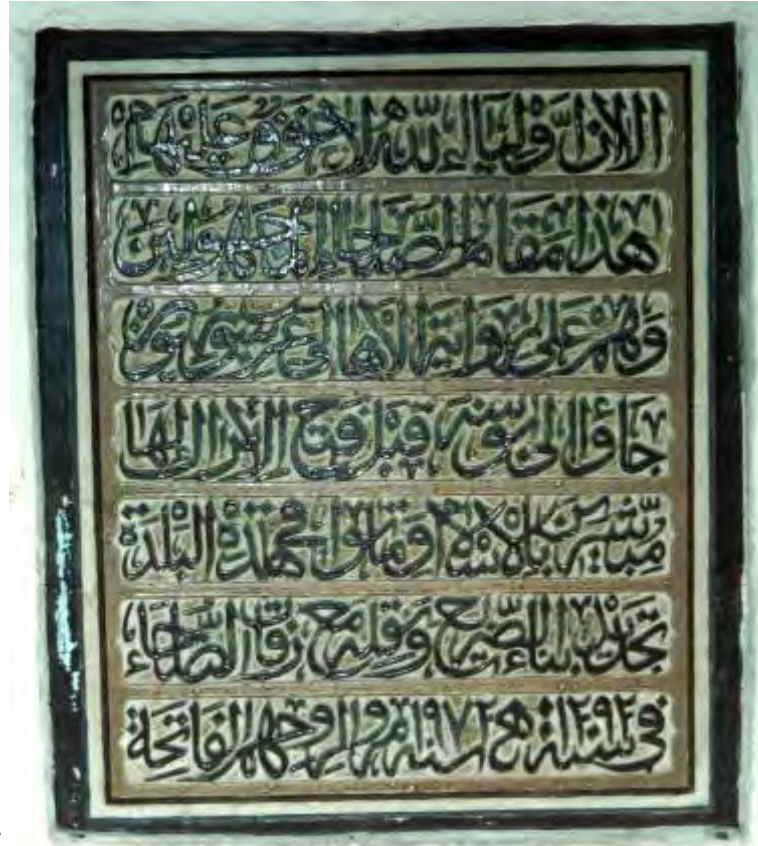 الا ان اولياء الله لا خوف عليهم
هذا مقام الصلحاء المجهولين
وهم على رواية الاهالى عرب
جاؤا الى بوسنه قبل فتح الاتراك لها
مبشرين بالاسلام وماتوا فى هذه البلدة
تجديد بناء الضريح ونقله مع رفات الصلحاء
فى سنة ١٣٩٢ هـ سنة ١٩٧٢ م ولروحهم الفاتحة